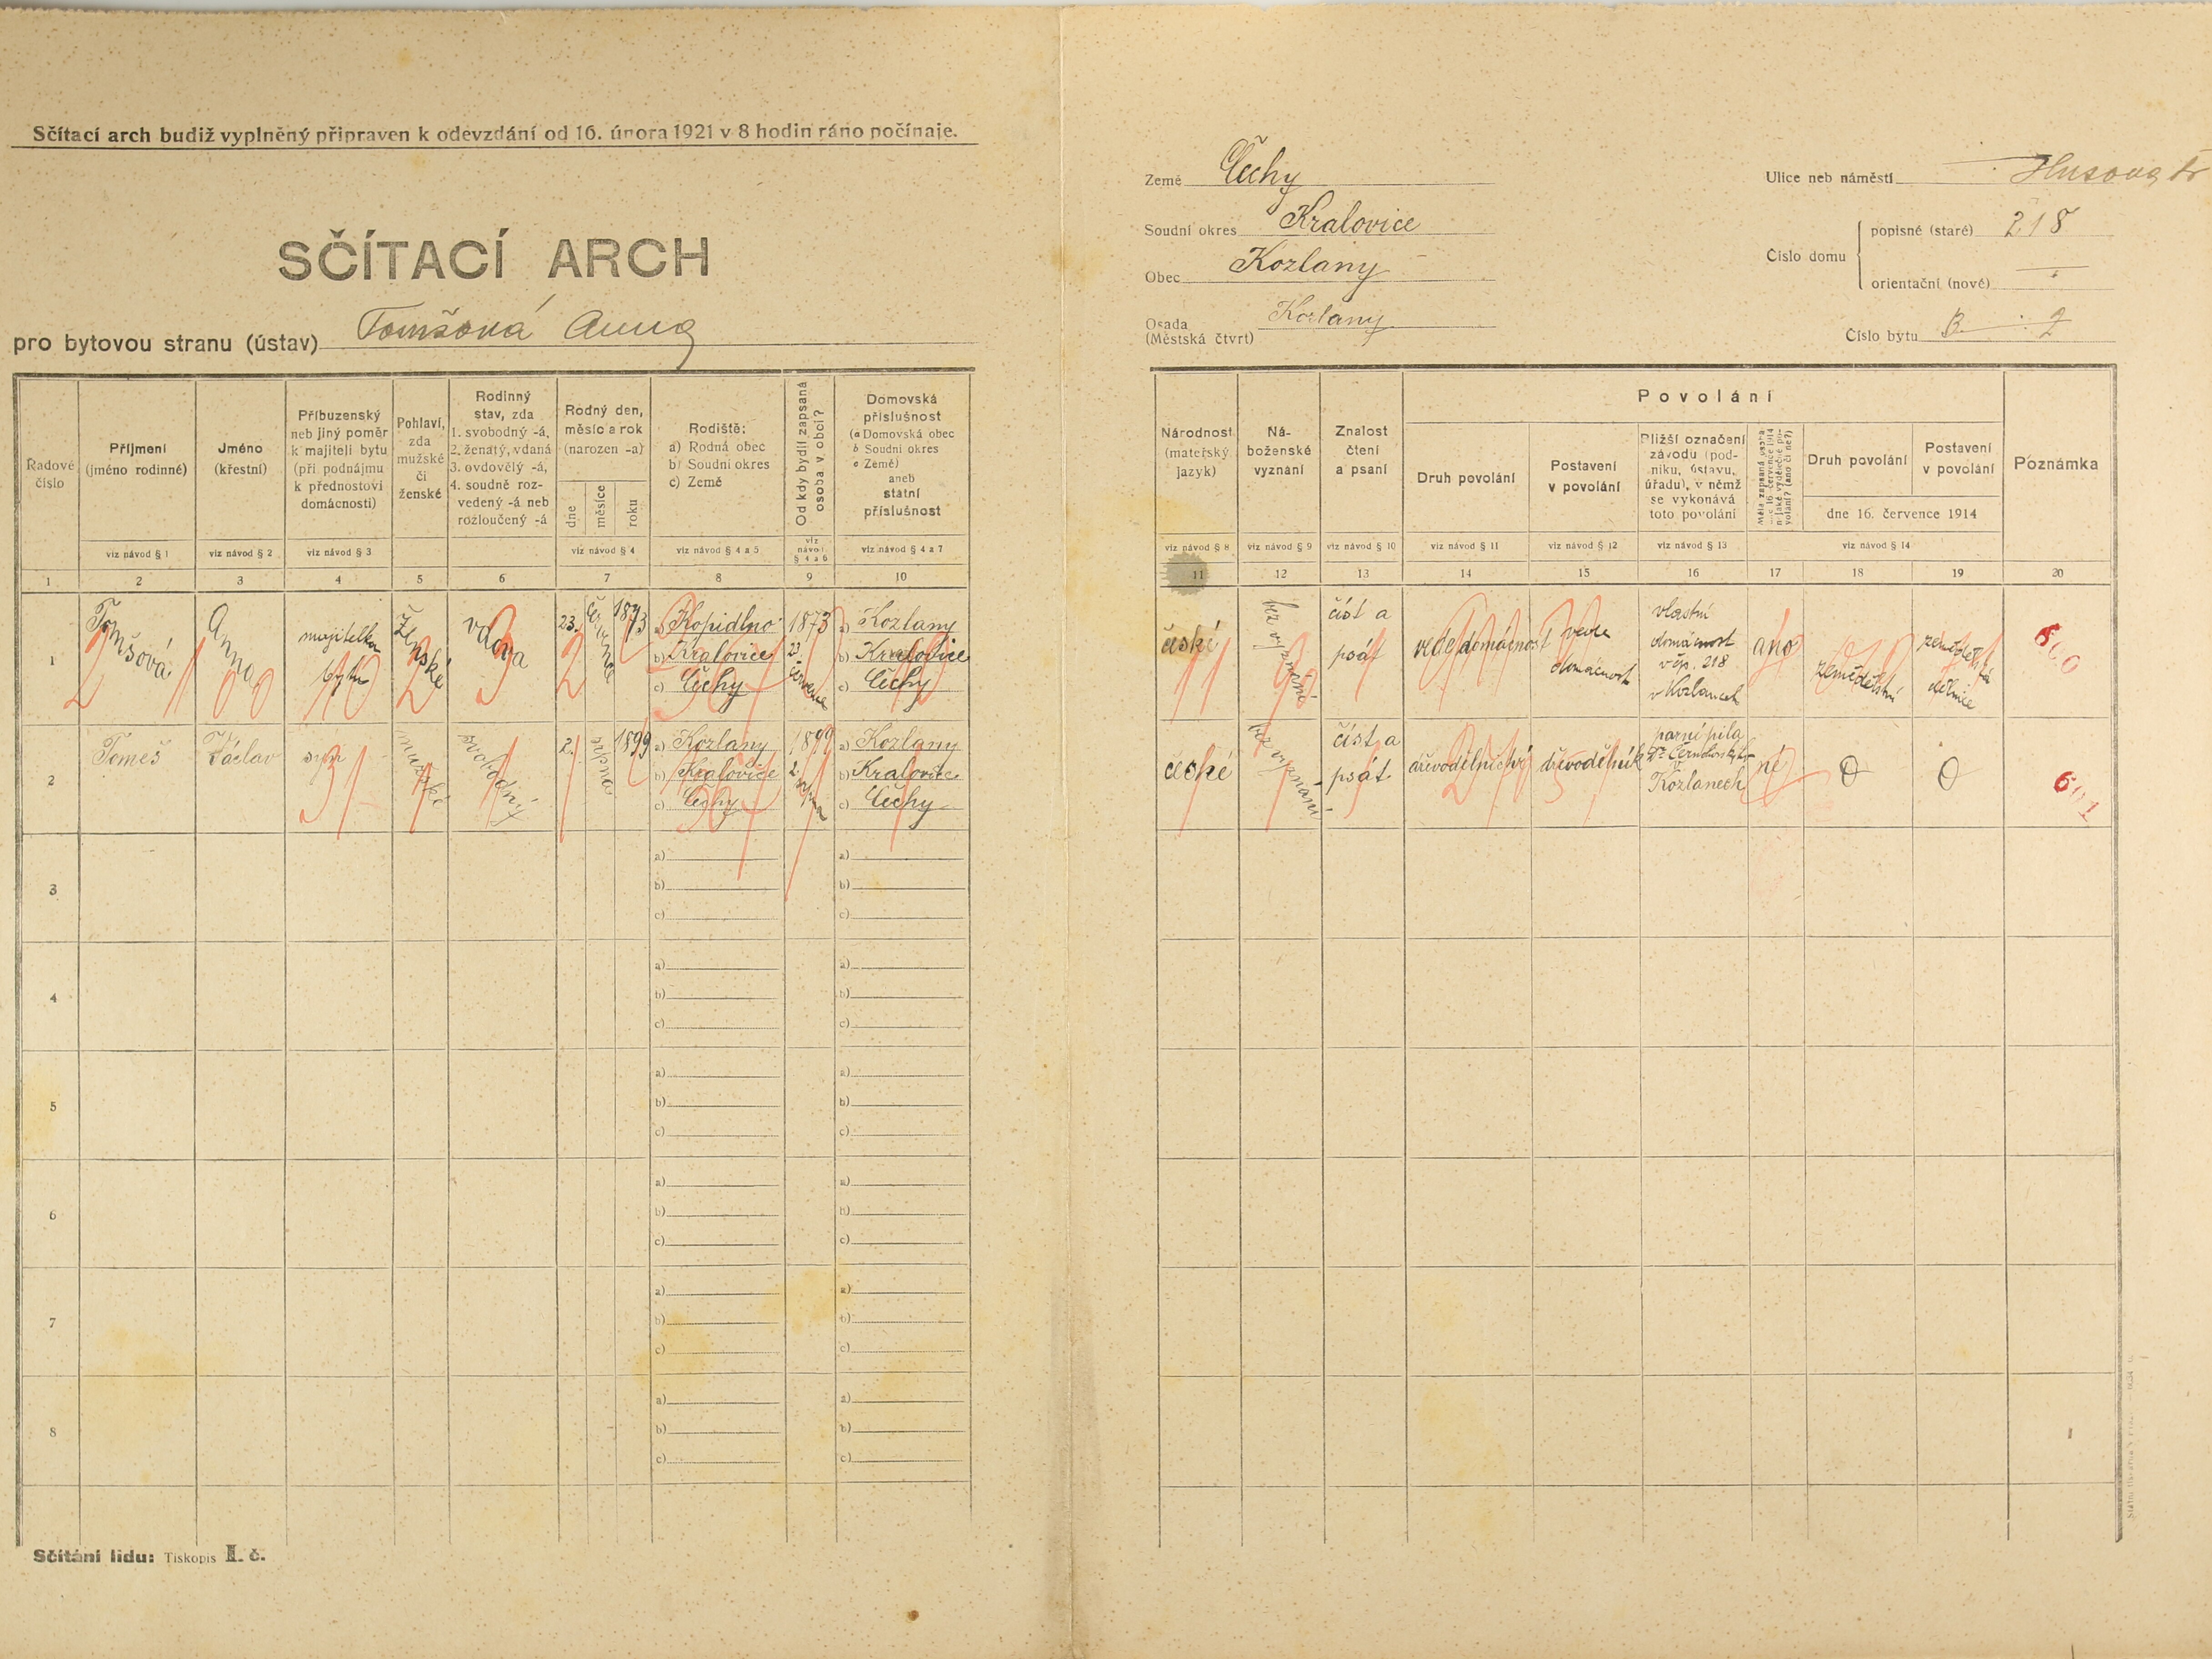 Sčítací arch budiž vyplněný připraven k odevzdání od 16. února 1921 v 8 hodin ráno počínaje.
SČÍTACÍ ARCH
pro bytovou stranu (ústav) Tomšová Anna
Země Čechy
Soudní okres Kralovice
Obec Kozlany
Osada Kozlany
(Městská čtvrť)
Ulice neb náměstí Husova tř
Číslo domu
popisné (staré) 218
orientační (nové) —
Číslo bytu B 2
Řadové číslo
Příjmení (jméno rodinné)
viz návod § 1
Jméno (křestní)
viz návod § 2
Příbuzenský neb jiný poměr k majiteli bytu (při podnájmu k přednostovi domácnosti)
viz návod § 3
Pohlaví, zda mužské či ženské
Rodinný stav, zda
1. svobodný -á,
2. ženatý, vdaná
3. ovdovělý -á,
4. soudně rozvedený -á neb rozloučený -á
Rodný den, měsíc a rok (narozen -a)
dne
měsíce
roku
viz návod § 4
Rodiště:
a) Rodná obec
b) Soudní okres
c) Země
viz návod § 4 a 5
Od kdy bydlí zapsaná osoba v obci?
viz návod § 4 a 6
Domovská příslušnost
(a Domovská obec
b Soudní okres
c Země)
aneb státní příslušnost
viz návod § 4 a 7
1 2 3 4 5 6 7 8 9 10
Národnost (mateřský jazyk)
viz návod § 8
Náboženské vyznání
viz návod § 9
Znalost čtení a psaní
viz návod § 10
Povolání
Druh povolání
viz návod § 11
Postavení v povolání
viz návod § 12
Bližší označení závodu (podniku, ústavu, úřadu), v němž se vykonává toto povolání
viz návod § 13
Druh povolání
Postavení v povolání
dne 16. července 1914
viz návod § 14
Poznámka
11 12 13 14 15 16 17 18 19 20
1
Tomšová
Anna
majitelka
bytu
ženské
vdova
23.
července
1873
a) Kopidlno
b) Kralovice
c) Čechy
1873
23.
července
a) Kozlany
b) Kralovice
c) Čechy
české
bez vyznání
číst a
psát
vede domácnost
vede
domácnost
vlastní
domácnost
v čp. 218
v Kozlanech
ano
zemědělství
zemědělská
dělnice
600
2
Tomeš
Václav
syn
mužské
svobodný
2.
srpna
1899
a) Kozlany
b) Kralovice
c) Čechy
1899
2.
srpna
a) Kozlany
b) Kralovice
c) Čechy
české
bez vyznání
číst a
psát
dřevodělnictví
dřevodělník
parní pila
v
Kozlanech
ne
0
0
601
3
a)
b)
c)
a)
b)
c)
4
a)
b)
c)
a)
b)
c)
5
a)
b)
c)
a)
b)
c)
6
a)
b)
c)
a)
b)
c)
7
a)
b)
c)
a)
b)
c)
8
a)
b)
c)
a)
b)
c)
Sčítání lidu: Tiskopis II. č.